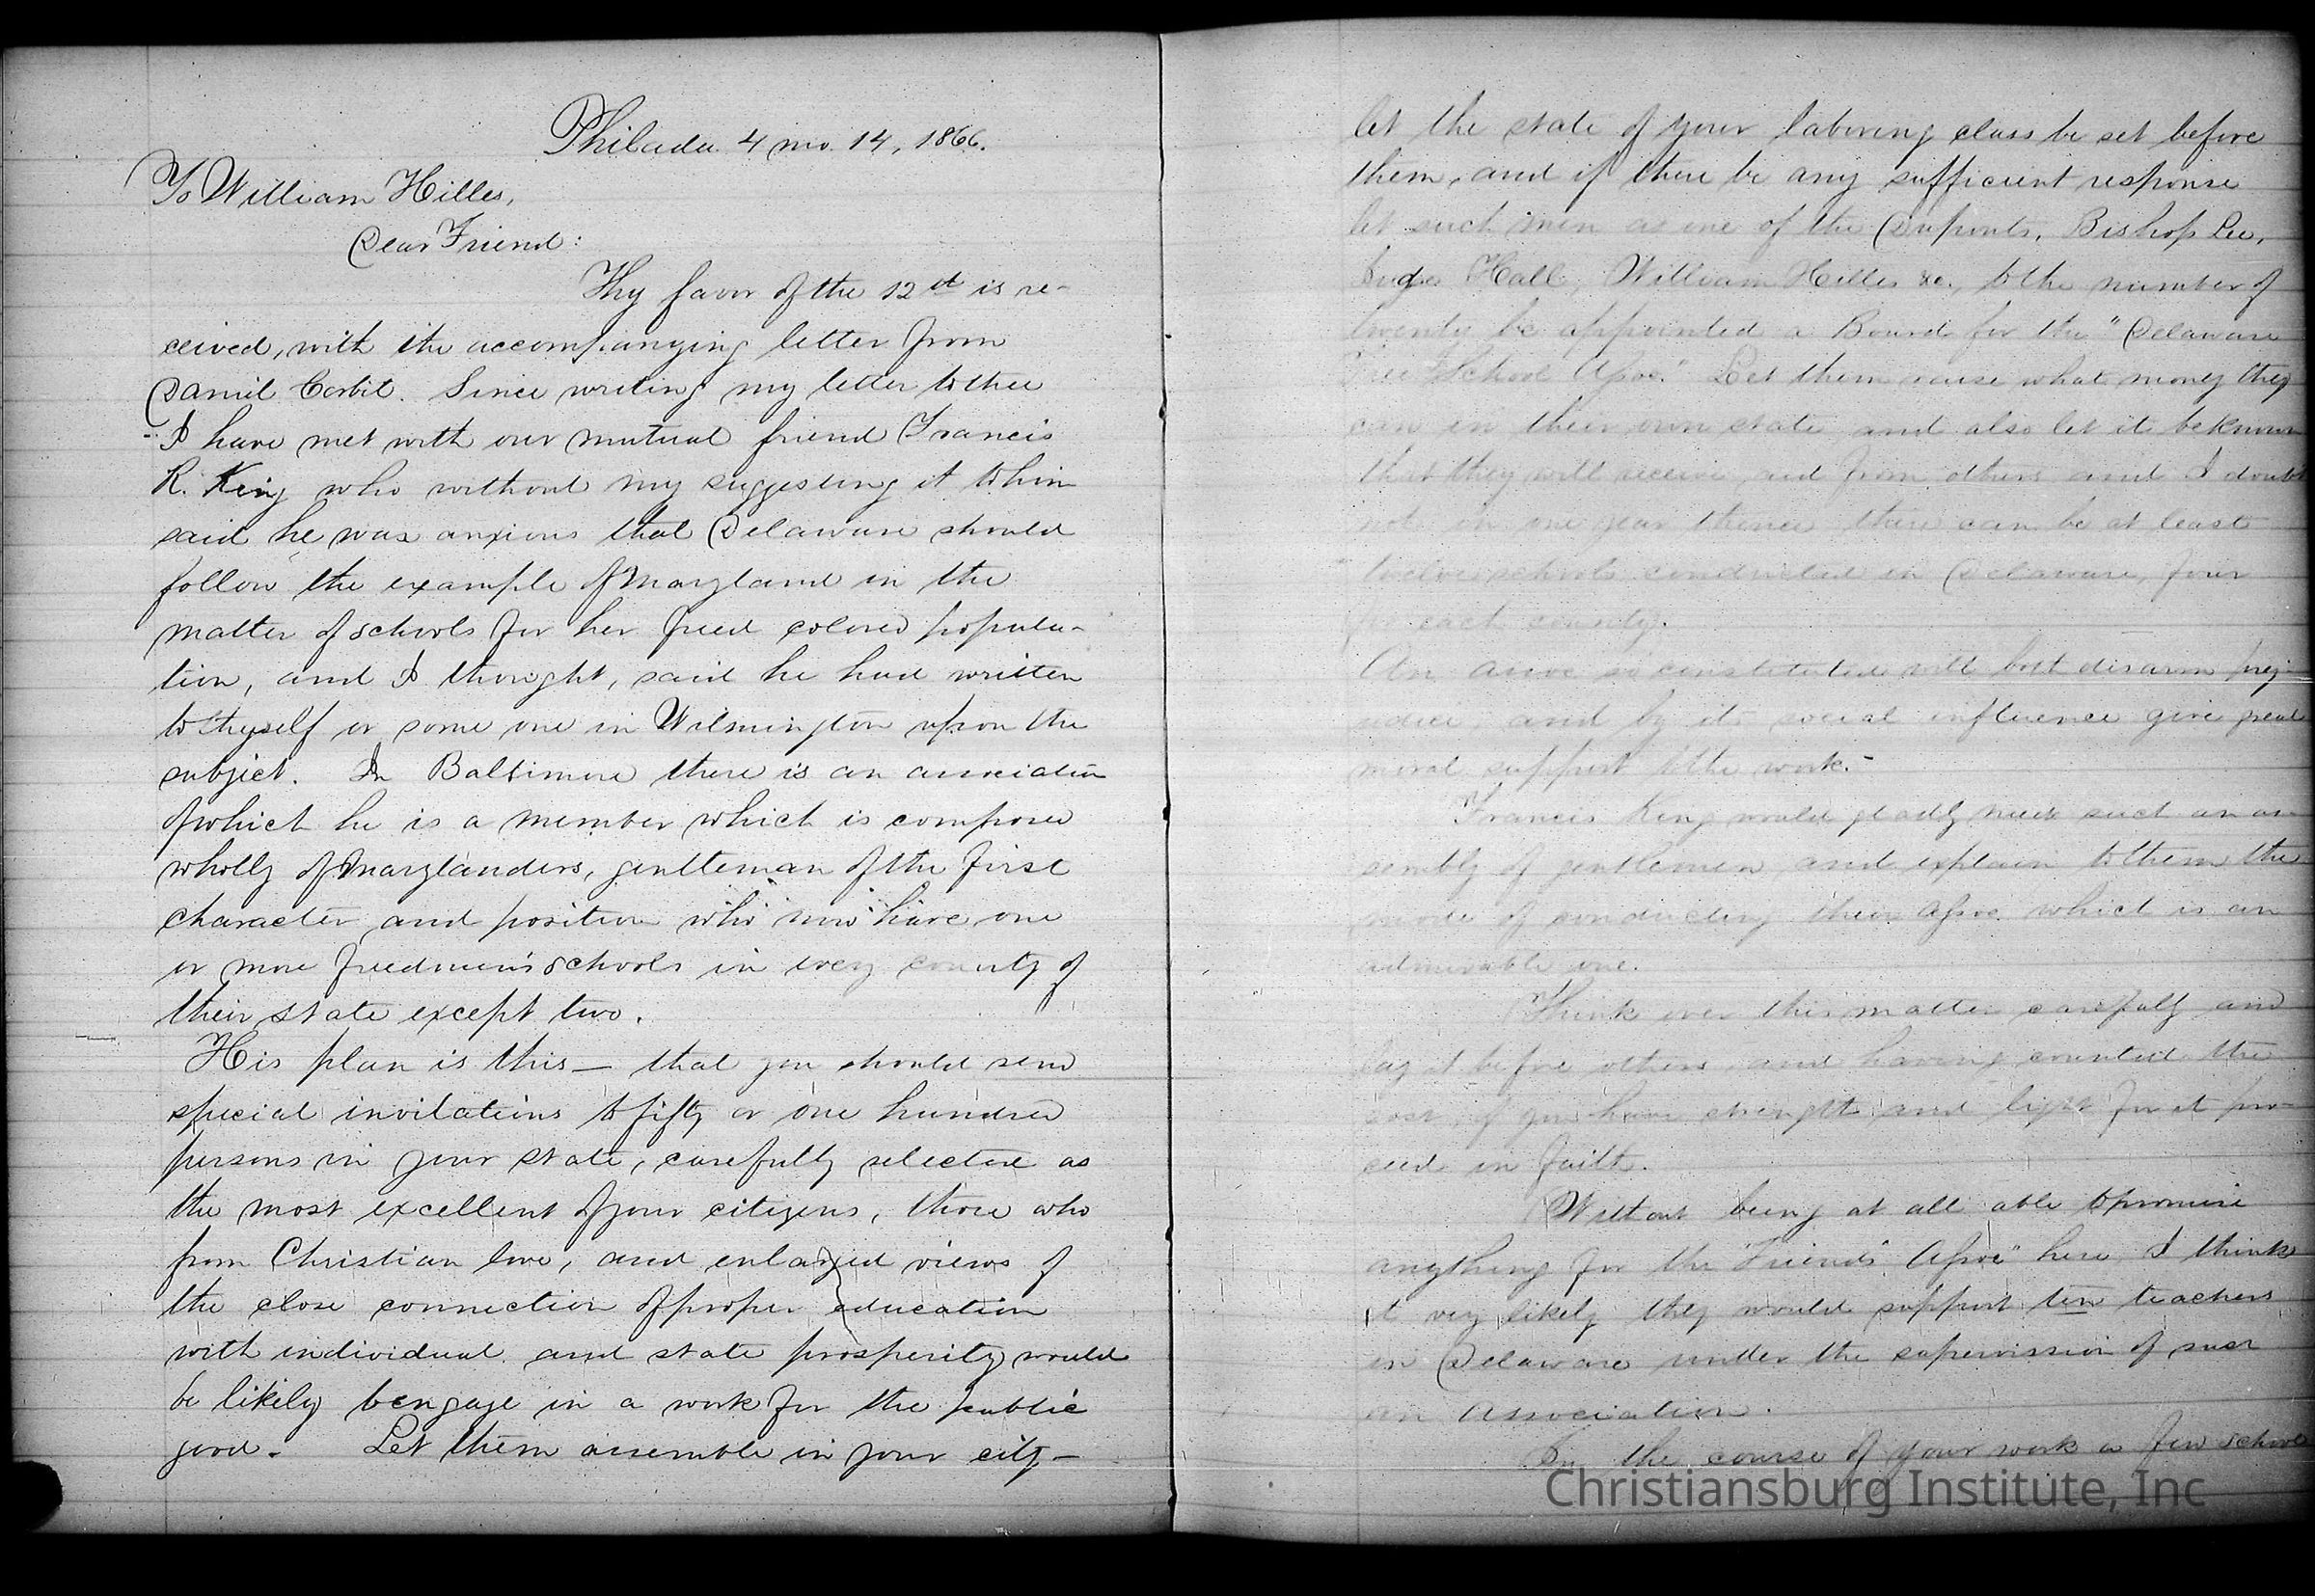 Philada 4 mo. 14, 1866.
To William Hilles,
Dear Friend:
Thy favor of the 12th is re-
ceived, with the accompanying letter from
Daniel Corbit. Since writing my letter to thee
I have met with our mutual friend Francis
R. King who without my suggesting it to him
said he was anxious that Delaware should
follow the example of Maryland in the
matter of schools for her freed colored popula-
tion, and I thought, said he had written
to thyself or some one in Wilmington upon the
subject. In Baltimore there is an association
of which he is a member which is composed
wholly of Marylanders, gentleman of the first
character and position who now have one
or more freedmen's schools in every county of
their state except two.
His plan is this — that you should send
special invitations to fifty or one hundred
persons in your state, carefully selected as
the most excellent of your citizens, those who
from Christian love, and enlarged views of
the close connection of proper education
with individual and state prosperity would
be likely to engage in a work for the public
good. Let them assemble in your city —
let the state of your laboring class be set before
them, and if there be any sufficient response
let such men as one of the Duponts, Bishop Lee,
Judge Hall, William Hilles &c., to the number of
twenty be appointed a Board for the "Delaware
Free School Assoc." Let them raise what money they
can in their own state and also let it be known
that they will receive aid from others and I doubt
not in one year thence there can be at least
twelve schools conducted in Delaware, four
for each county.
An assoc so constituted will best disarm prej-
udice, and by its social influence give great
moral support to the work.-
Francis King would gladly meet such an as-
sembly of gentlemen and explain to them the
mode of conducting their Assoc. which is an
admirable one.
Think over this matter carefully and
lay it before others, and having counted the
cost, if you have strength and light for it pro-
ceed in faith.
Without being at all able to promise
anything for the "Friends' Assoc" here, I think
it very likely they would support ten teachers
in Delaware under the supervision of such
an Association.
In the course of your work a few schools
Christiansburg Institute, Inc